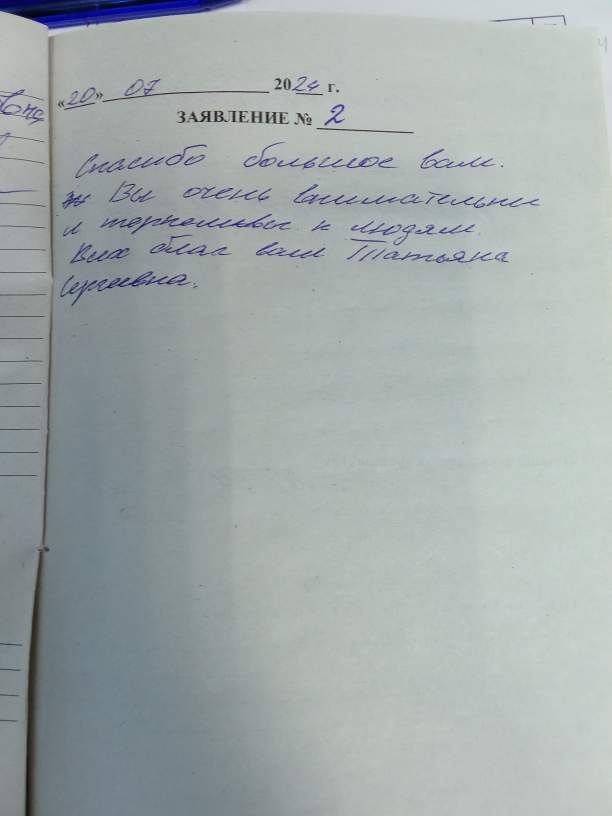 «20» 07 2024 г.
ЗАЯВЛЕНИЕ № 2
Спасибо большое вам.
Вы очень внимательны
и терпеливы к людям.
Всех благ вам Татьяна
Сергеевна.